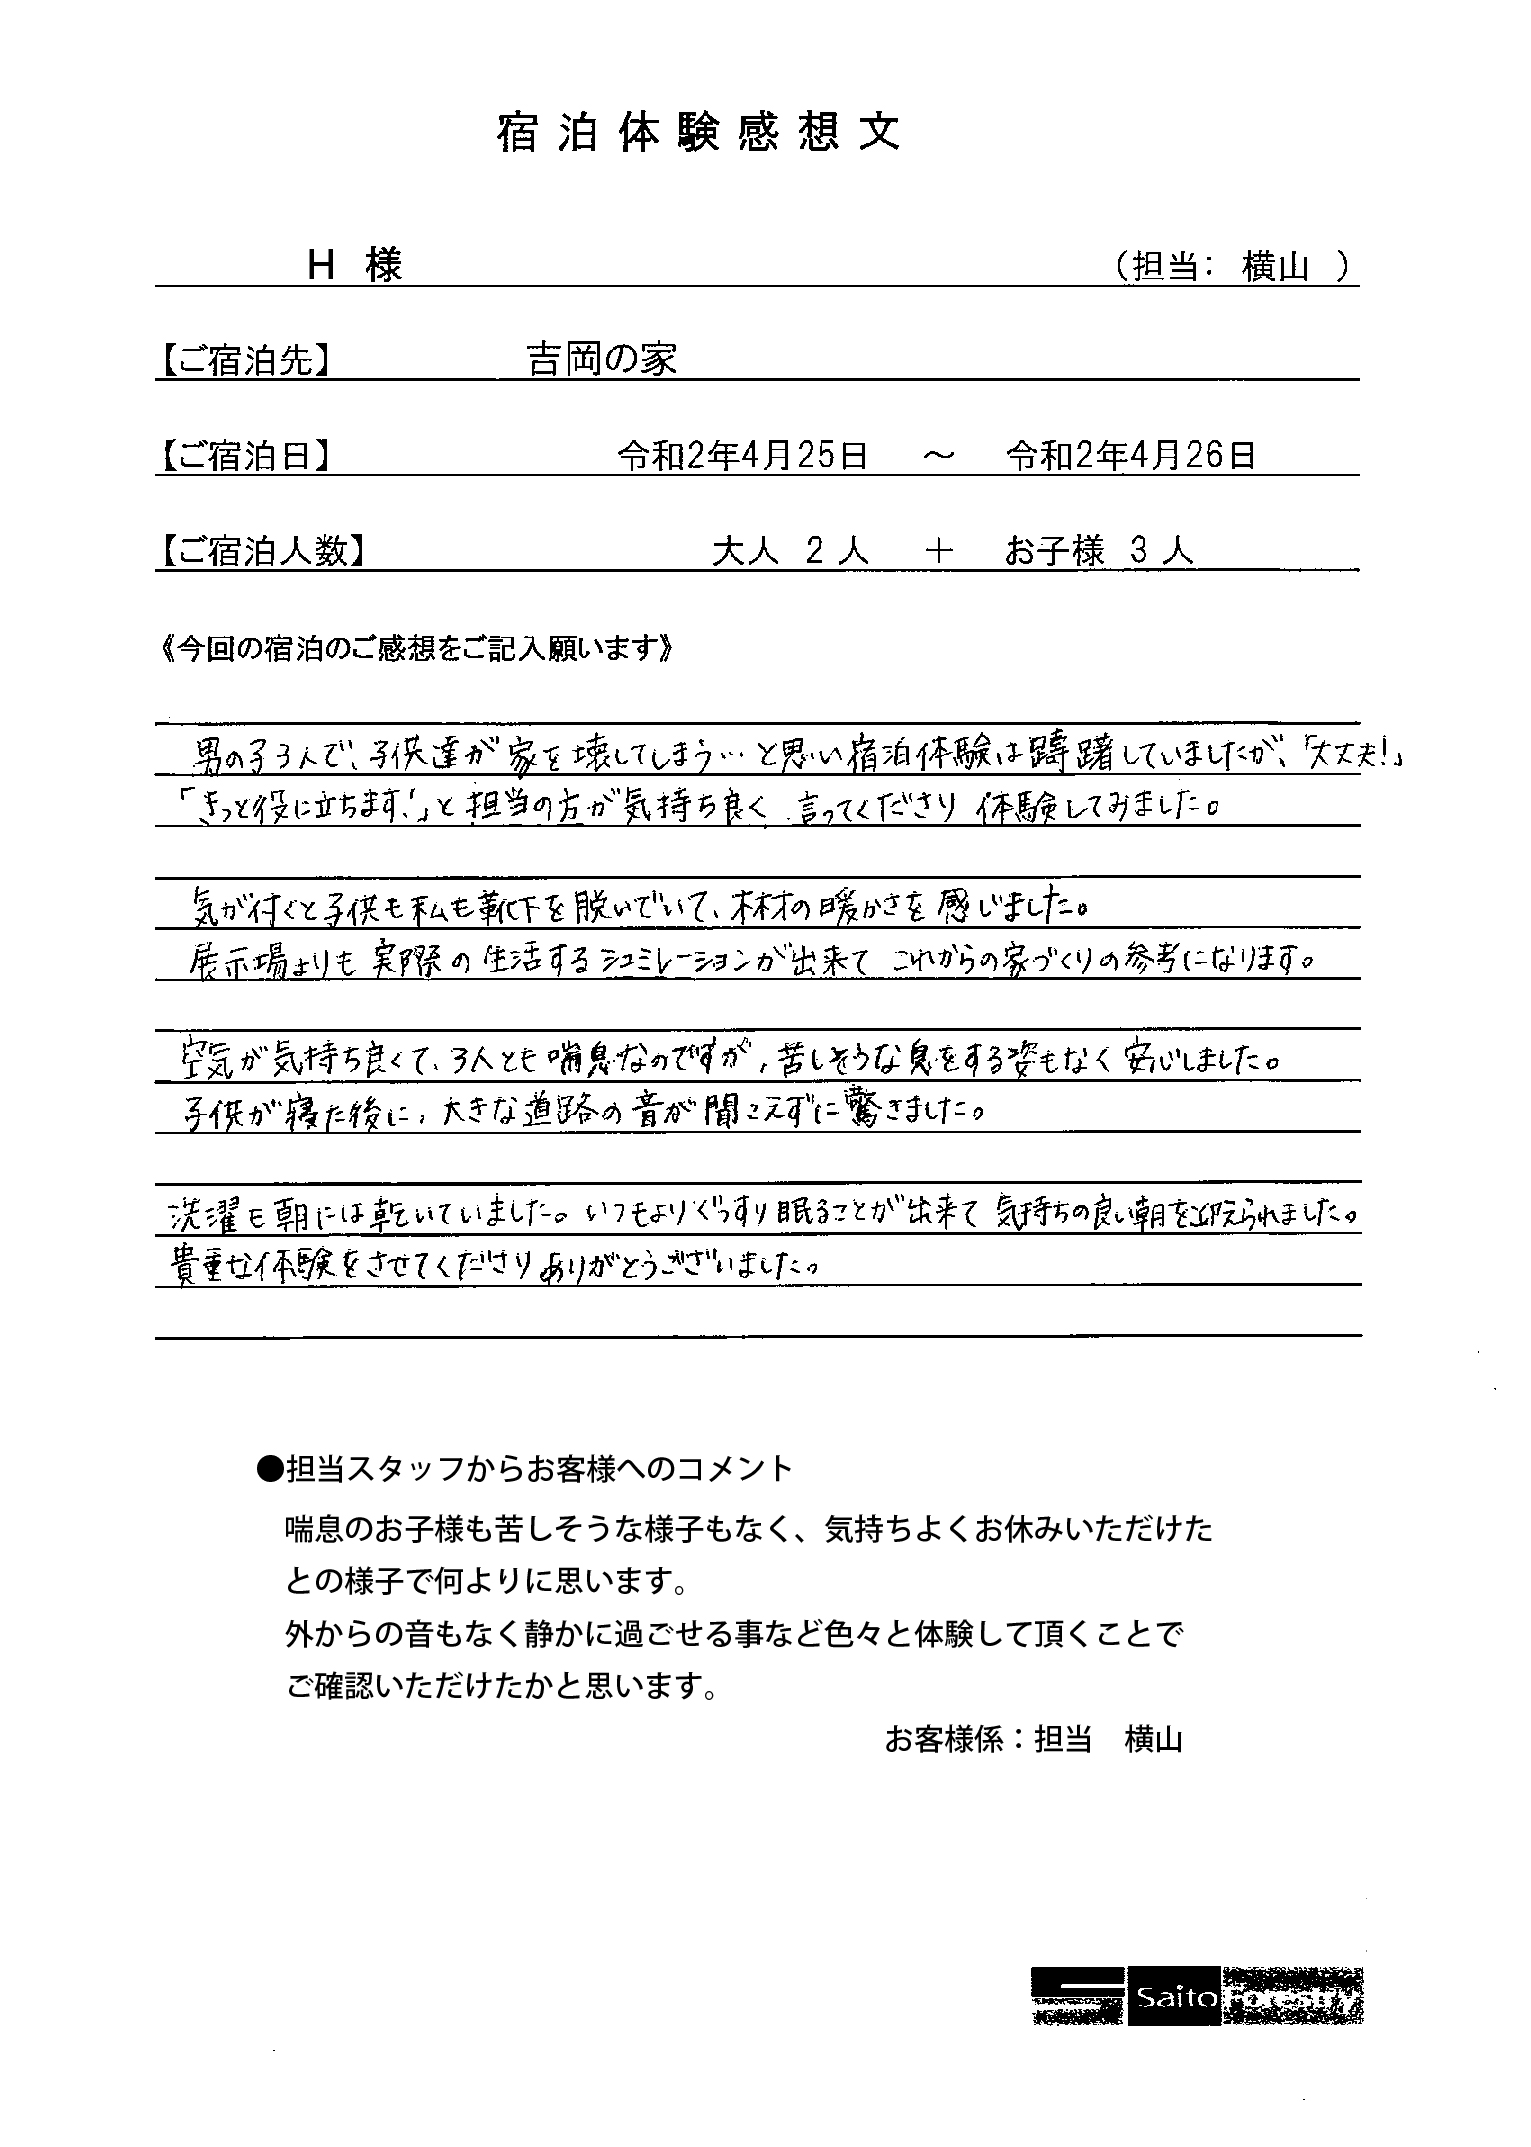 宿泊体験感想文
H 様 （担当： 横山 ）
【ご宿泊先】 吉岡の家
【ご宿泊日】 令和2年4月25日 ～ 令和2年4月26日
【ご宿泊人数】 大人 2 人 ＋ お子様 3 人
《今回の宿泊のご感想をご記入願います》
男の子3人で、子供達が家を壊してしまう…と思い宿泊体験は躊躇していましたが、「大丈夫!」
「きっと役に立ちます!」と担当の方が気持ち良く言ってくださり体験してみました。
気が付くと子供も私も靴下を脱いでいて、木材の暖かさを感じました。
展示場よりも実際の生活するシュミレーションが出来てこれからの家づくりの参考になります。
空気が気持ち良くて、3人とも喘息なのですが、苦しそうな息をする姿もなく安心しました。
子供が寝た後に、大きな道路の音が聞こえずに驚きました。
洗濯も朝には乾いていました。いつもよりぐっすり眠ることが出来て気持ちの良い朝を迎えられました。
貴重な体験をさせてくださりありがとうございました。
●担当スタッフからお客様へのコメント
喘息のお子様も苦しそうな様子もなく、気持ちよくお休みいただけた
との様子で何よりに思います。
外からの音もなく静かに過ごせる事など色々と体験して頂くことで
ご確認いただけたかと思います。
お客様係：担当 横山
Saito Forestry